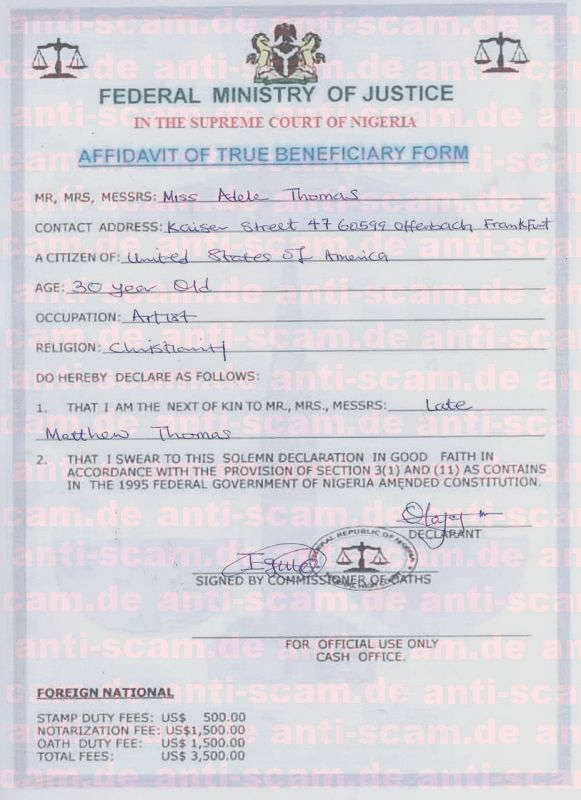 FEDERAL MINISTRY OF JUSTICE
IN THE SUPREME COURT OF NIGERIA
AFFIDAVIT OF TRUE BENEFICIARY FORM
MR, MRS, MESSRS: Miss Adele Thomas
CONTACT ADDRESS: Kaiser Street 47 60599 Offenbach Frankfurt
A CITIZEN OF: United States Of America
AGE: 30 year Old
OCCUPATION: Artist
RELIGION: Christianity
DO HEREBY DECLARE AS FOLLOWS:
1. THAT I AM THE NEXT OF KIN TO MR., MRS., MESSRS: Late
Matthew Thomas
2. THAT I SWEAR TO THIS SOLEMN DECLARATION IN GOOD FAITH IN
ACCORDANCE WITH THE PROVISION OF SECTION 3(1) AND (11) AS CONTAINS
IN THE 1995 FEDERAL GOVERNMENT OF NIGERIA AMENDED CONSTITUTION.
DECLARANT
FEDERAL REPUBLIC OF NIGERIA
SIGNED BY COMMISSIONER OF OATHS
FOR OFFICIAL USE ONLY
CASH OFFICE.
FOREIGN NATIONAL
STAMP DUTY FEES: US$ 500.00
NOTARIZATION FEE: US$1,500.00
OATH DUTY FEE: US$ 1,500.00
TOTAL FEES: US$ 3,500.00
anti-scam.de